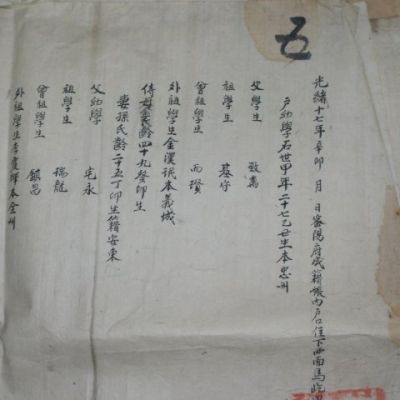 五
光緖十七年辛卯 月 日密陽府成籍帳內戶口住下西面馬屹
戶幼學石世甲年二十七乙丑生本忠州
父學生 致嵩
祖學生 基宇
曾祖學生 而瑩
外祖學生金漢 本義城
母 氏齡四十九癸卯生
妻孫氏齡二十五丁卯生籍安東
父幼學 光永
祖學生 瑞龍
曾祖學生 鎭昌
外祖學生李 本全州